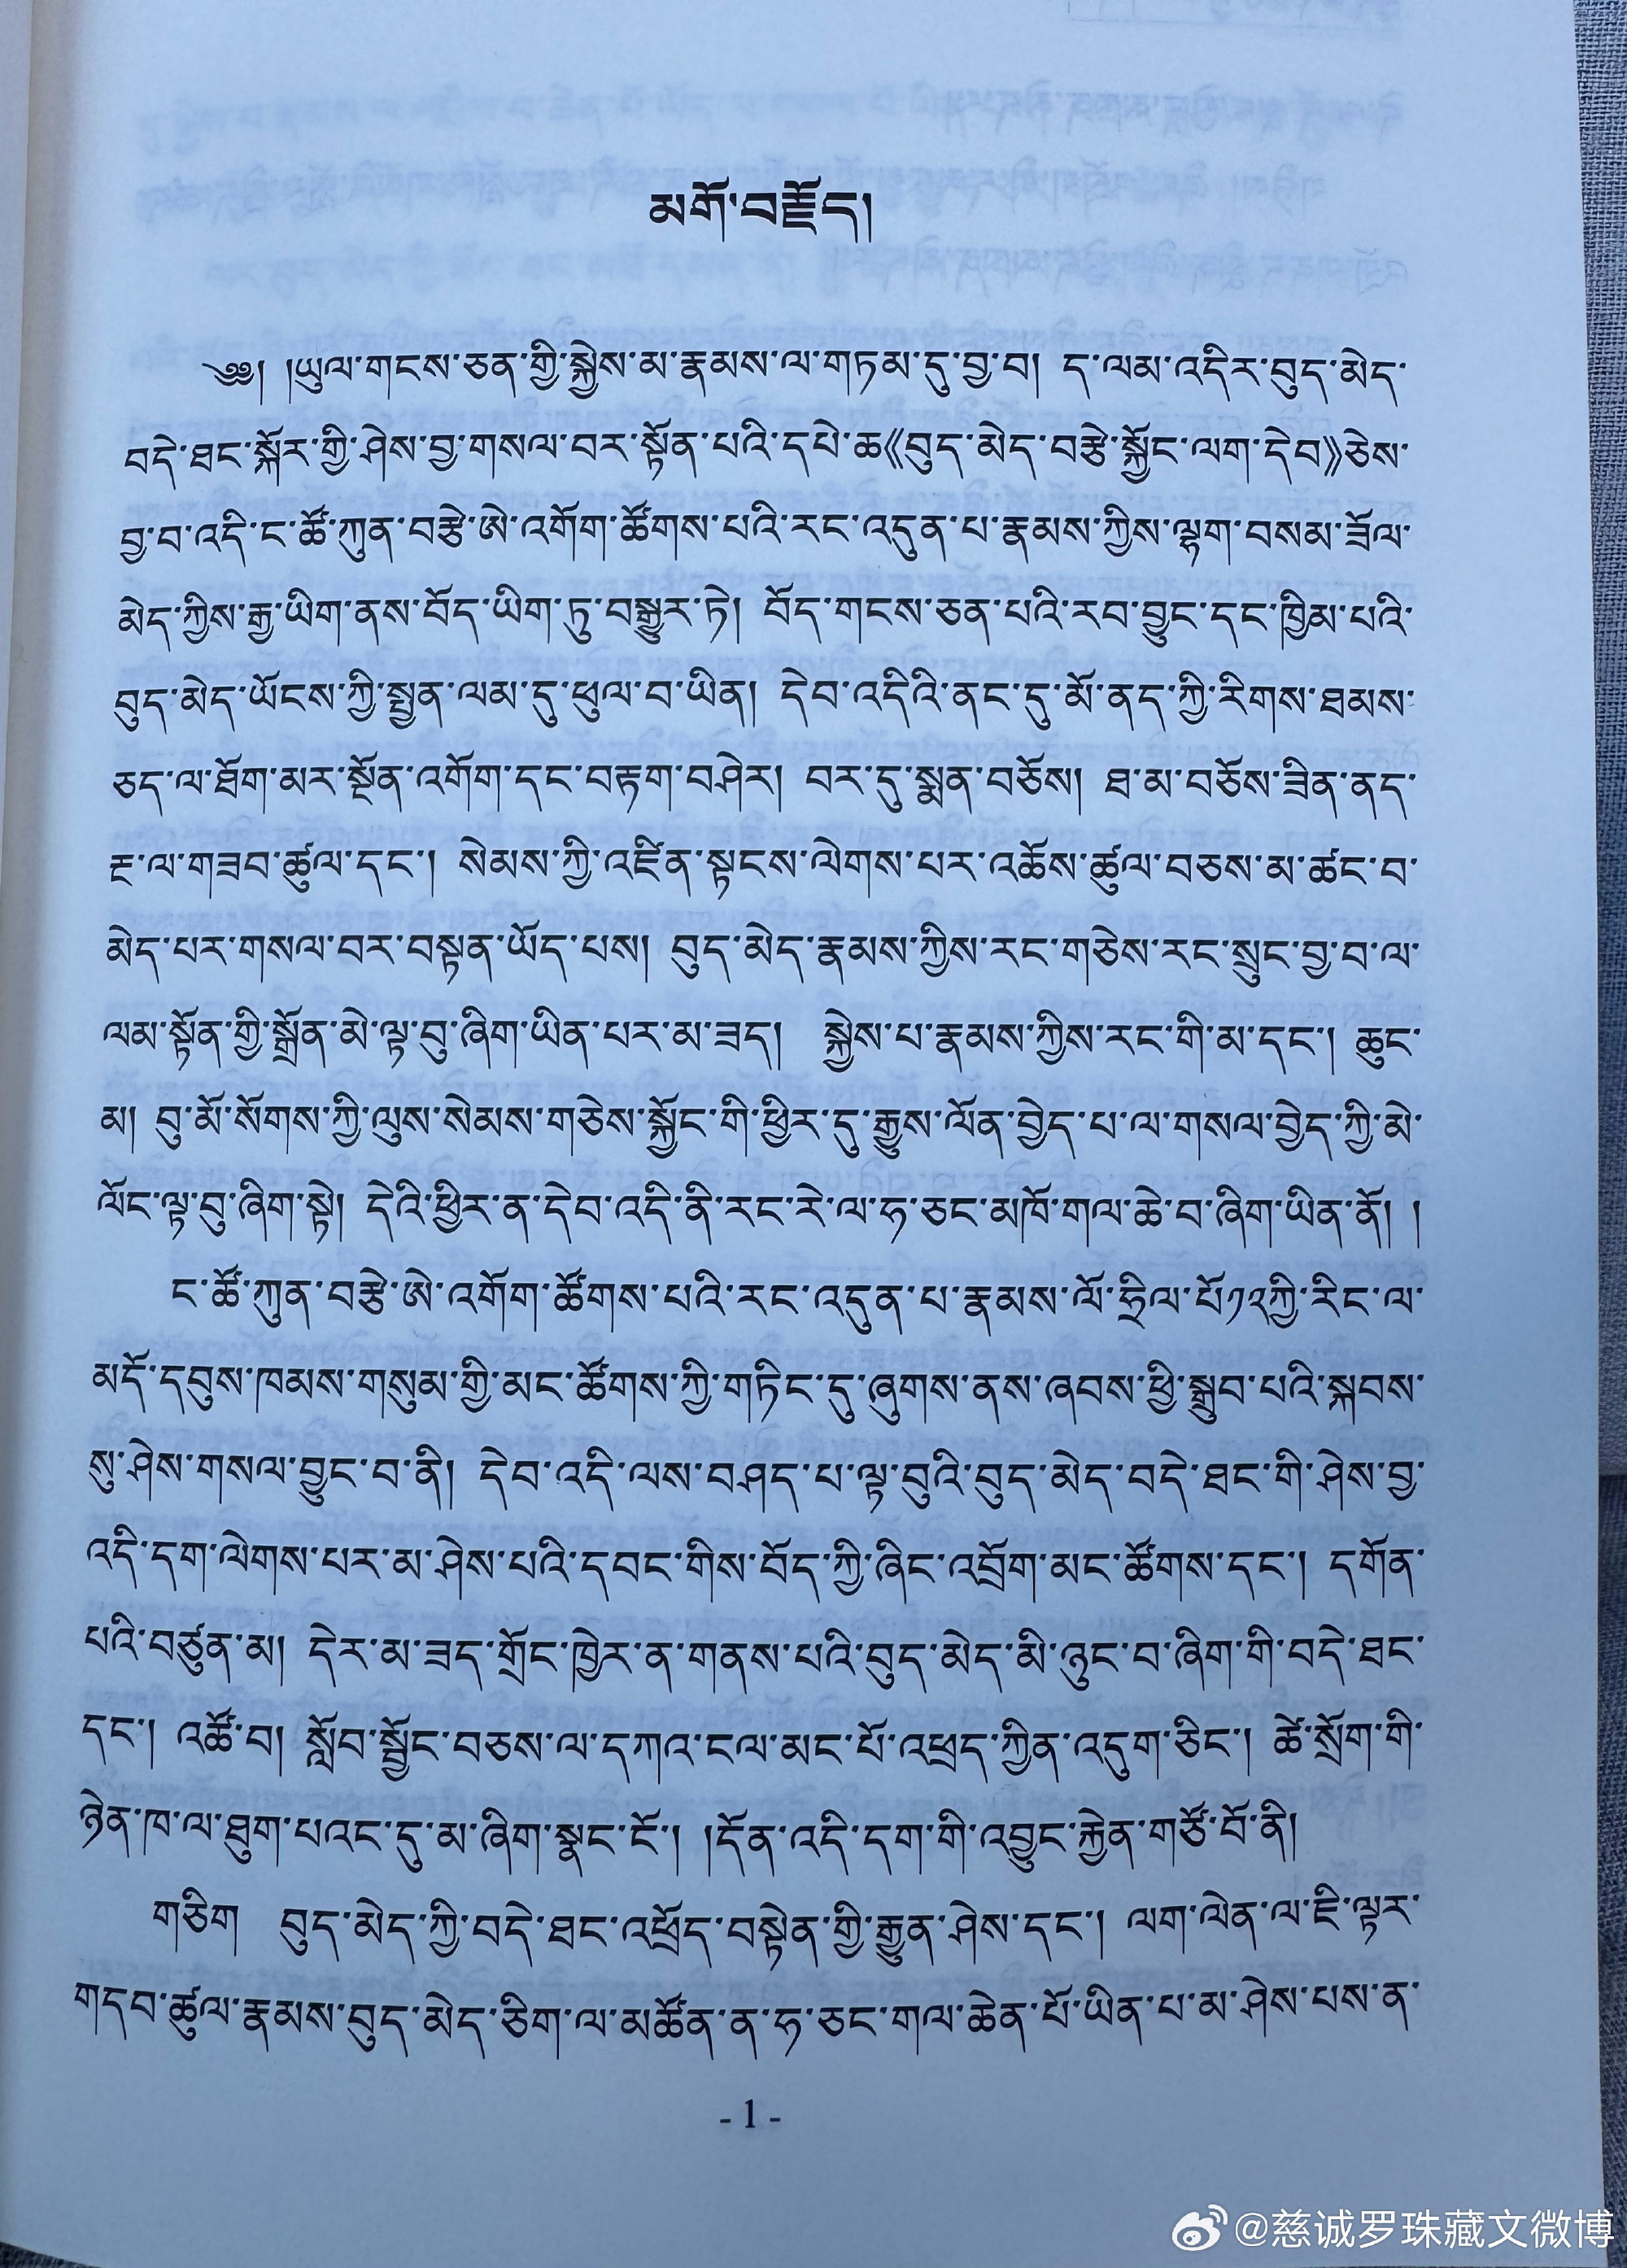 མགོ་བརྗོད།
༄༅། །ཡུལ་གངས་ཅན་གྱི་སྐྱེས་མ་རྣམས་ལ་གཏམ་དུ་བྱ་བ། ད་ལམ་འདིར་བུད་མེད་
བདེ་ཐང་སྐོར་གྱི་ཤེས་བྱ་གསལ་བར་སྟོན་པའི་དཔེ་ཆ《བུད་མེད་བརྩེ་སྐྱོང་ལག་དེབ》ཅེས་
བྱ་བ་འདི་ང་ཚོ་ཀུན་བརྩེ་ཨེ་འགོག་ཚོགས་པའི་རང་འདུན་པ་རྣམས་ཀྱིས་ལྷག་བསམ་ཟོལ་
མེད་ཀྱིས་རྒྱ་ཡིག་ནས་བོད་ཡིག་ཏུ་བསྒྱུར་ཏེ། བོད་གངས་ཅན་པའི་རབ་བྱུང་དང་ཁྱིམ་པའི་
བུད་མེད་ཡོངས་ཀྱི་སྤྱན་ལམ་དུ་ཕུལ་བ་ཡིན། དེབ་འདིའི་ནང་དུ་མོ་ནད་ཀྱི་རིགས་ཐམས་
ཅད་ལ་ཐོག་མར་སྔོན་འགོག་དང་བརྟག་བཤེར། བར་དུ་སྨན་བཅོས། ཐ་མ་བཅོས་ཟིན་ནད་
རྗེ་ལ་གཟབ་ཚུལ་དང་། སེམས་ཀྱི་འཛིན་སྟངས་ལེགས་པར་འཆོས་ཚུལ་བཅས་མ་ཚང་བ་
མེད་པར་གསལ་བར་བསྟན་ཡོད་པས། བུད་མེད་རྣམས་ཀྱིས་རང་གཅེས་རང་སྲུང་བྱ་བ་ལ་
ལམ་སྟོན་གྱི་སྒྲོན་མེ་ལྟ་བུ་ཞིག་ཡིན་པར་མ་ཟད། སྐྱེས་པ་རྣམས་ཀྱིས་རང་གི་མ་དང་། ཆུང་
མ། བུ་མོ་སོགས་ཀྱི་ལུས་སེམས་གཅེས་སྐྱོང་གི་ཕྱིར་དུ་རྒྱུས་ལོན་བྱེད་པ་ལ་གསལ་བྱེད་ཀྱི་མེ་
ལོང་ལྟ་བུ་ཞིག་སྟེ། དེའི་ཕྱིར་ན་དེབ་འདི་ནི་རང་རེ་ལ་ཧ་ཅང་མཁོ་གལ་ཆེ་བ་ཞིག་ཡིན་ནོ། །
ང་ཚོ་ཀུན་བརྩེ་ཨེ་འགོག་ཚོགས་པའི་རང་འདུན་པ་རྣམས་ལོ་ཧྲིལ་པོ༡༢ཀྱི་རིང་ལ་
མདོ་དབུས་ཁམས་གསུམ་གྱི་མང་ཚོགས་ཀྱི་གཏིང་དུ་ཞུགས་ནས་ཞབས་ཕྱི་སྒྲུབ་པའི་སྐབས་
སུ་ཤེས་གསལ་བྱུང་བ་ནི། དེབ་འདི་ལས་བཤད་པ་ལྟ་བུའི་བུད་མེད་བདེ་ཐང་གི་ཤེས་བྱ་
འདི་དག་ལེགས་པར་མ་ཤེས་པའི་དབང་གིས་བོད་ཀྱི་ཞིང་འབྲོག་མང་ཚོགས་དང་། དགོན་
པའི་བཙུན་མ། དེར་མ་ཟད་གྲོང་ཁྱེར་ན་གནས་པའི་བུད་མེད་མི་ཉུང་བ་ཞིག་གི་བདེ་ཐང་
དང་། འཚོ་བ། སློབ་སྦྱོང་བཅས་ལ་དཀའ་ངལ་མང་པོ་འཕྲད་ཀྱིན་འདུག་ཅིང་། ཚེ་སྲོག་གི་
ཉེན་ཁ་ལ་ཐུག་པའང་དུ་མ་ཞིག་སྣང་ངོ་། །དོན་འདི་དག་གི་འབྱུང་རྐྱེན་གཙོ་བོ་ནི།
གཅིག བུད་མེད་ཀྱི་བདེ་ཐང་འཕྲོད་བསྟེན་གྱི་རྒྱུན་ཤེས་དང་། ལག་ལེན་ལ་ཇི་ལྟར་
གདབ་ཚུལ་རྣམས་བུད་མེད་ཅིག་ལ་མཚོན་ན་ཧ་ཅང་གལ་ཆེན་པོ་ཡིན་པ་མ་ཤེས་པས་ན་
- 1 -
@慈诚罗珠藏文微博